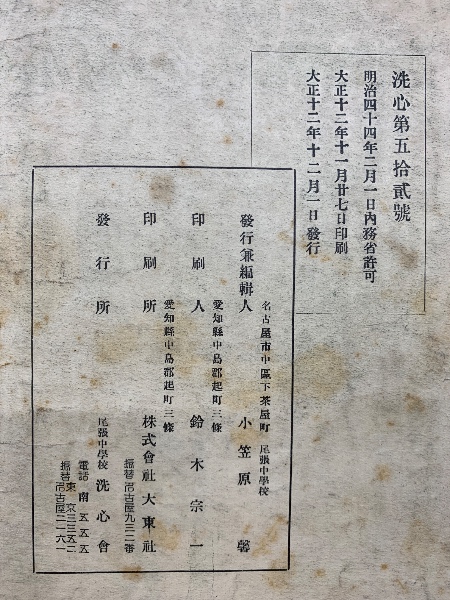 洗心第五拾貳號
明治四十四年二月一日內務省許可
大正十二年十一月廿七日印刷
大正十二年十二月一日發行
名古屋市中區下茶屋町 尾張中學校
發行兼編輯人 小笠原馨
愛知縣中島郡起町三條
印刷人 鈴木宗一
愛知縣中島郡起町三條
印刷所 株式會社大東社
振替名古屋九三二番
發行所 尾張中學校 洗心會
電話南五五五
振替東京三三五二
名古屋二一六一